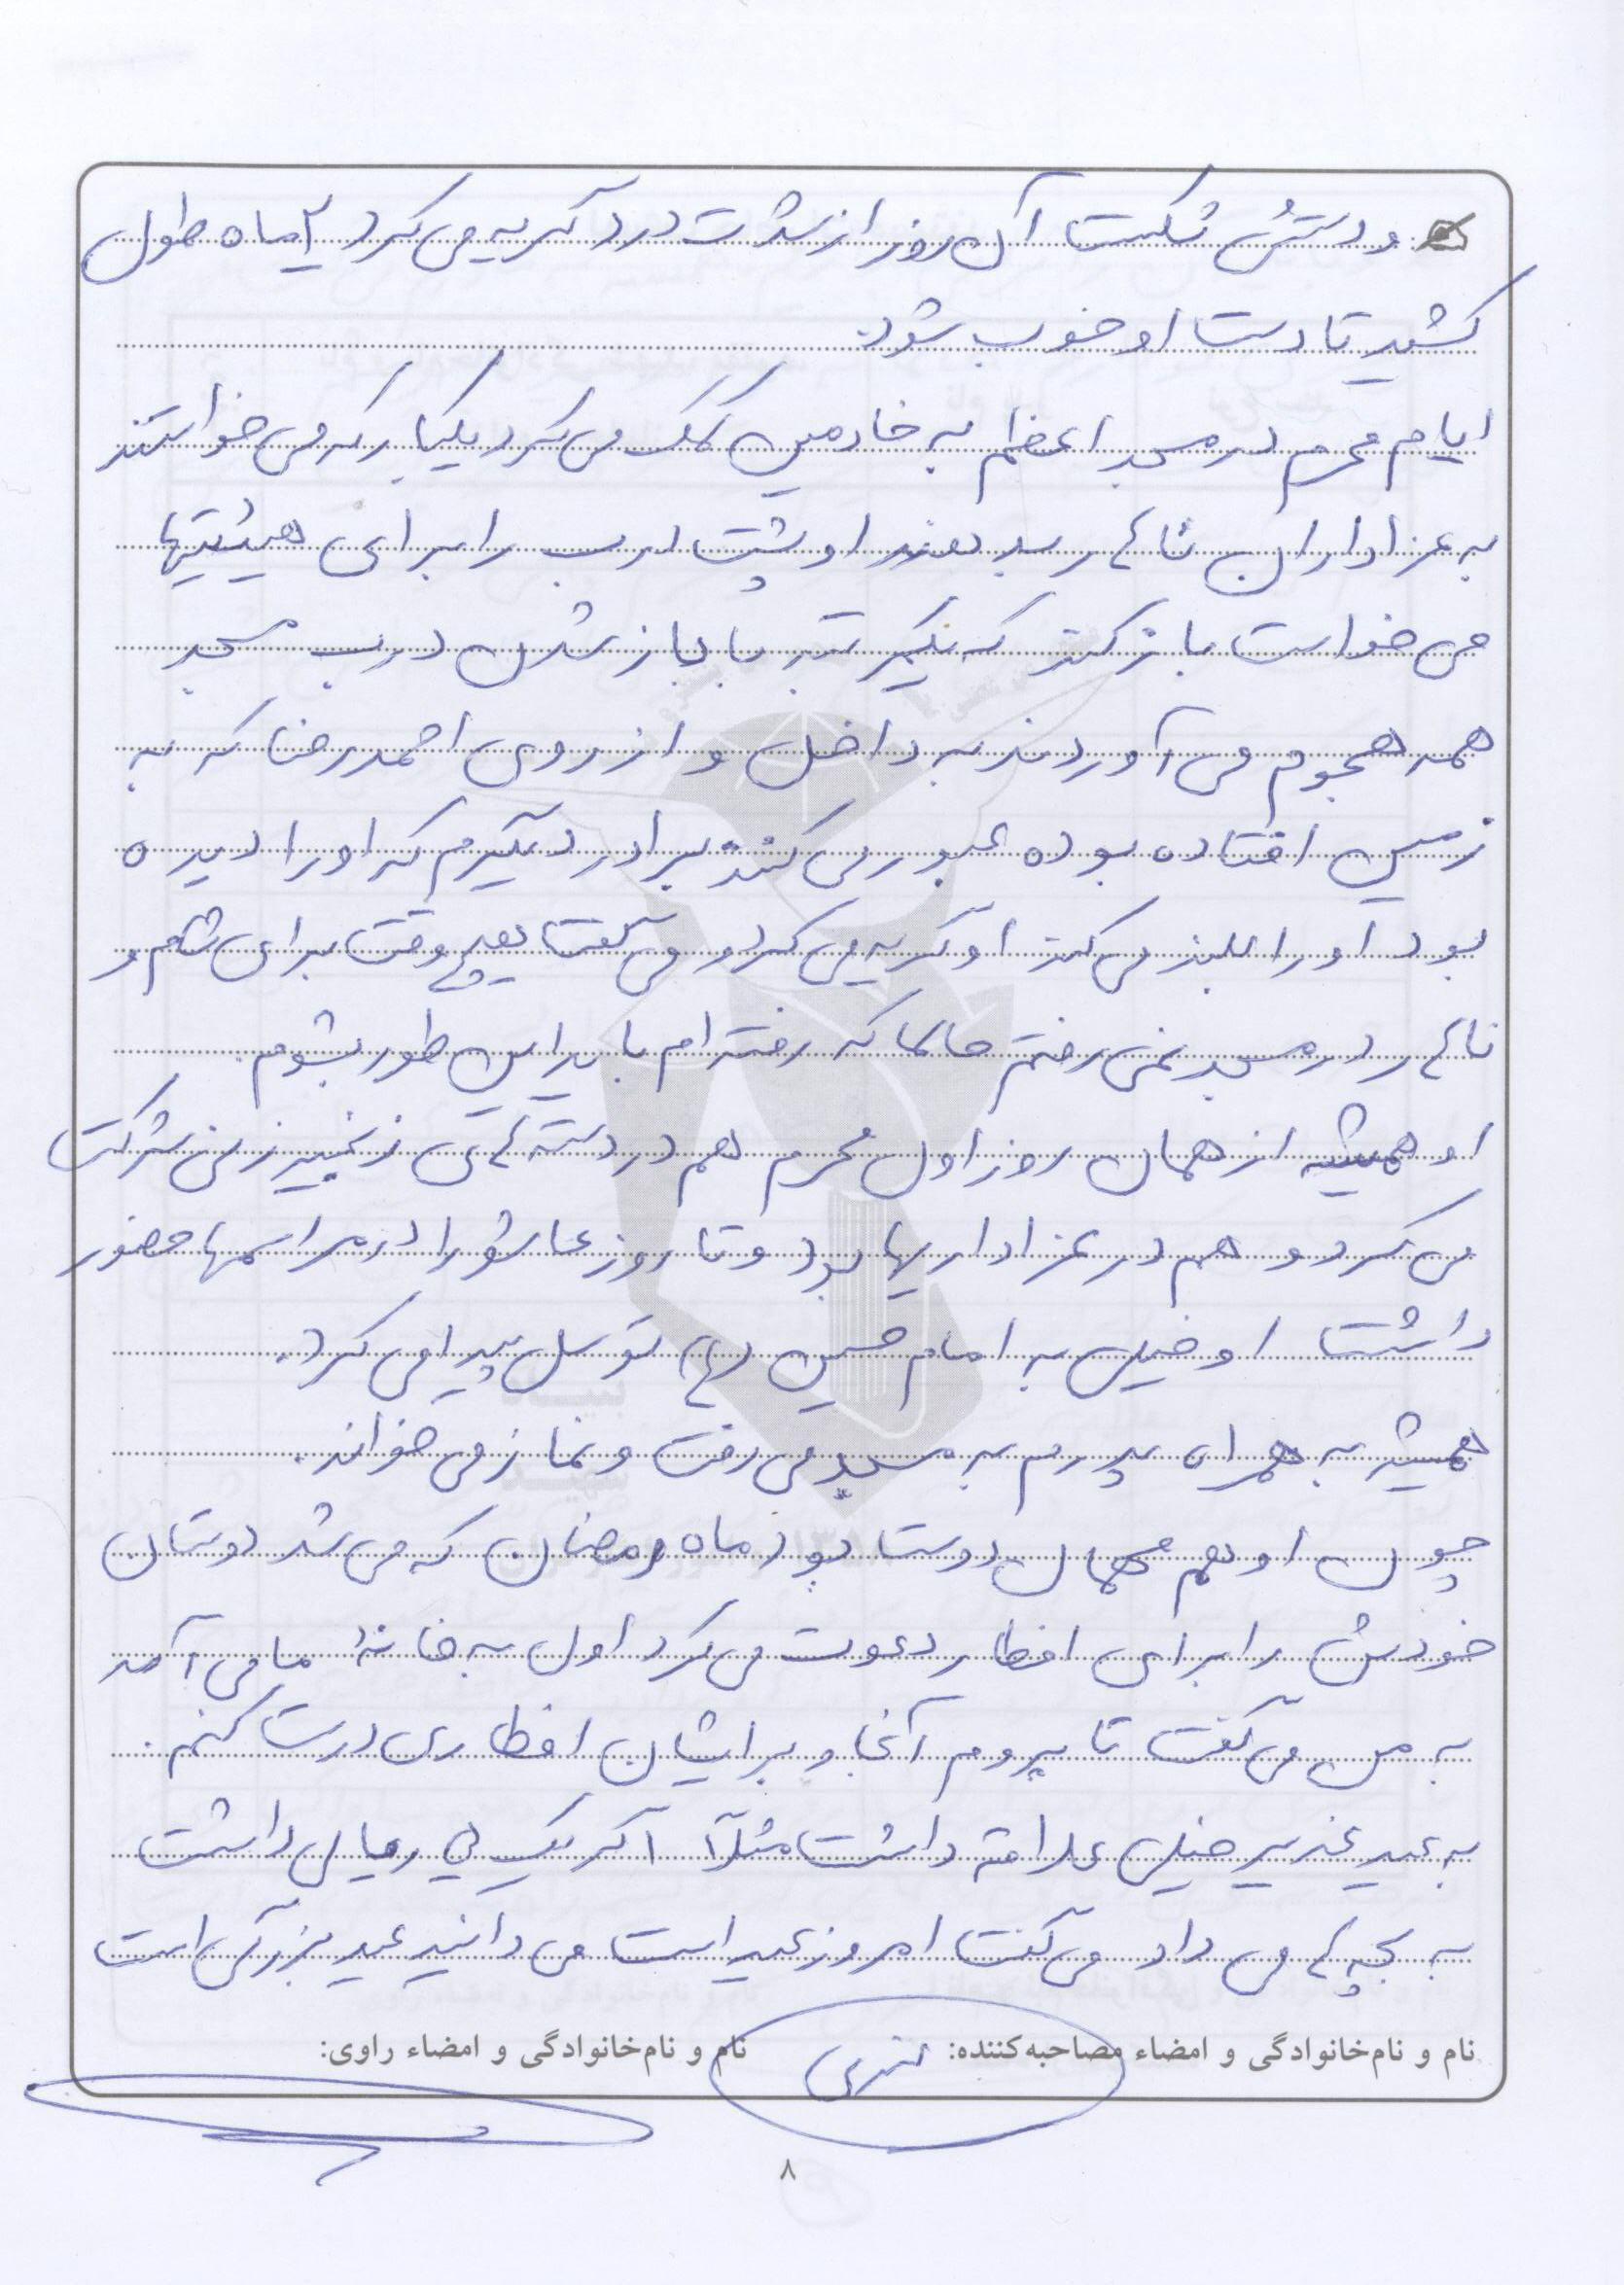 و دستش شکست آن روز از شدت درد گریه می کرد ۲ ماه طول
کشید تا دست او خوب شود.
ایام محرم در مسجد اعظم به خادمین کمک می کرد یکبار که می خواستند
به عزاداران ناهار بدهند او پشت درب را برای هیئتیها
می خواست باز کند که یکمرتبه با باز شدن درب مسجد
همه هجوم می آوردند به داخل و از روی احمدرضا که به
زمین افتاده بوده عبور می کنند برادر دیگرم که او را دیده
بود او را بلند می کند او گریه می کرد و می گفت هیچ وقت برای شام و
ناهار در مسجد نمی رفتم حالا که رفته ام باید این طور بشوم.
او همیشه از همان روز اول محرم هم در دسته های زنجیر زنی شرکت
می کرد و هم در عزاداریها بود و تا روز عاشورا در مراسمها حضور
داشت او خیلی به امام حسین (ع) توسل پیدا می کرد.
همیشه به همراه پدرم به مسجد می رفت و نماز می خواند.
چون او هم مهمان دوست بود ماه رمضان که می شد دوستان
خودش را برای افطار دعوت می کرد اول به خانهٔ ما می آمد
به من می گفت تا بروم آنجا و برایشان افطاری درست کنم.
به عید غدیر خیلی علاقه داشت مثلاً اگر یک ریالی داشت
به بچه ها می داد می گفت امروز عید است می دانید عید بزرگی است
نام و نام‌خانوادگی و امضاء مصاحبه‌کننده:
نام و نام‌خانوادگی و امضاء راوی:
۸